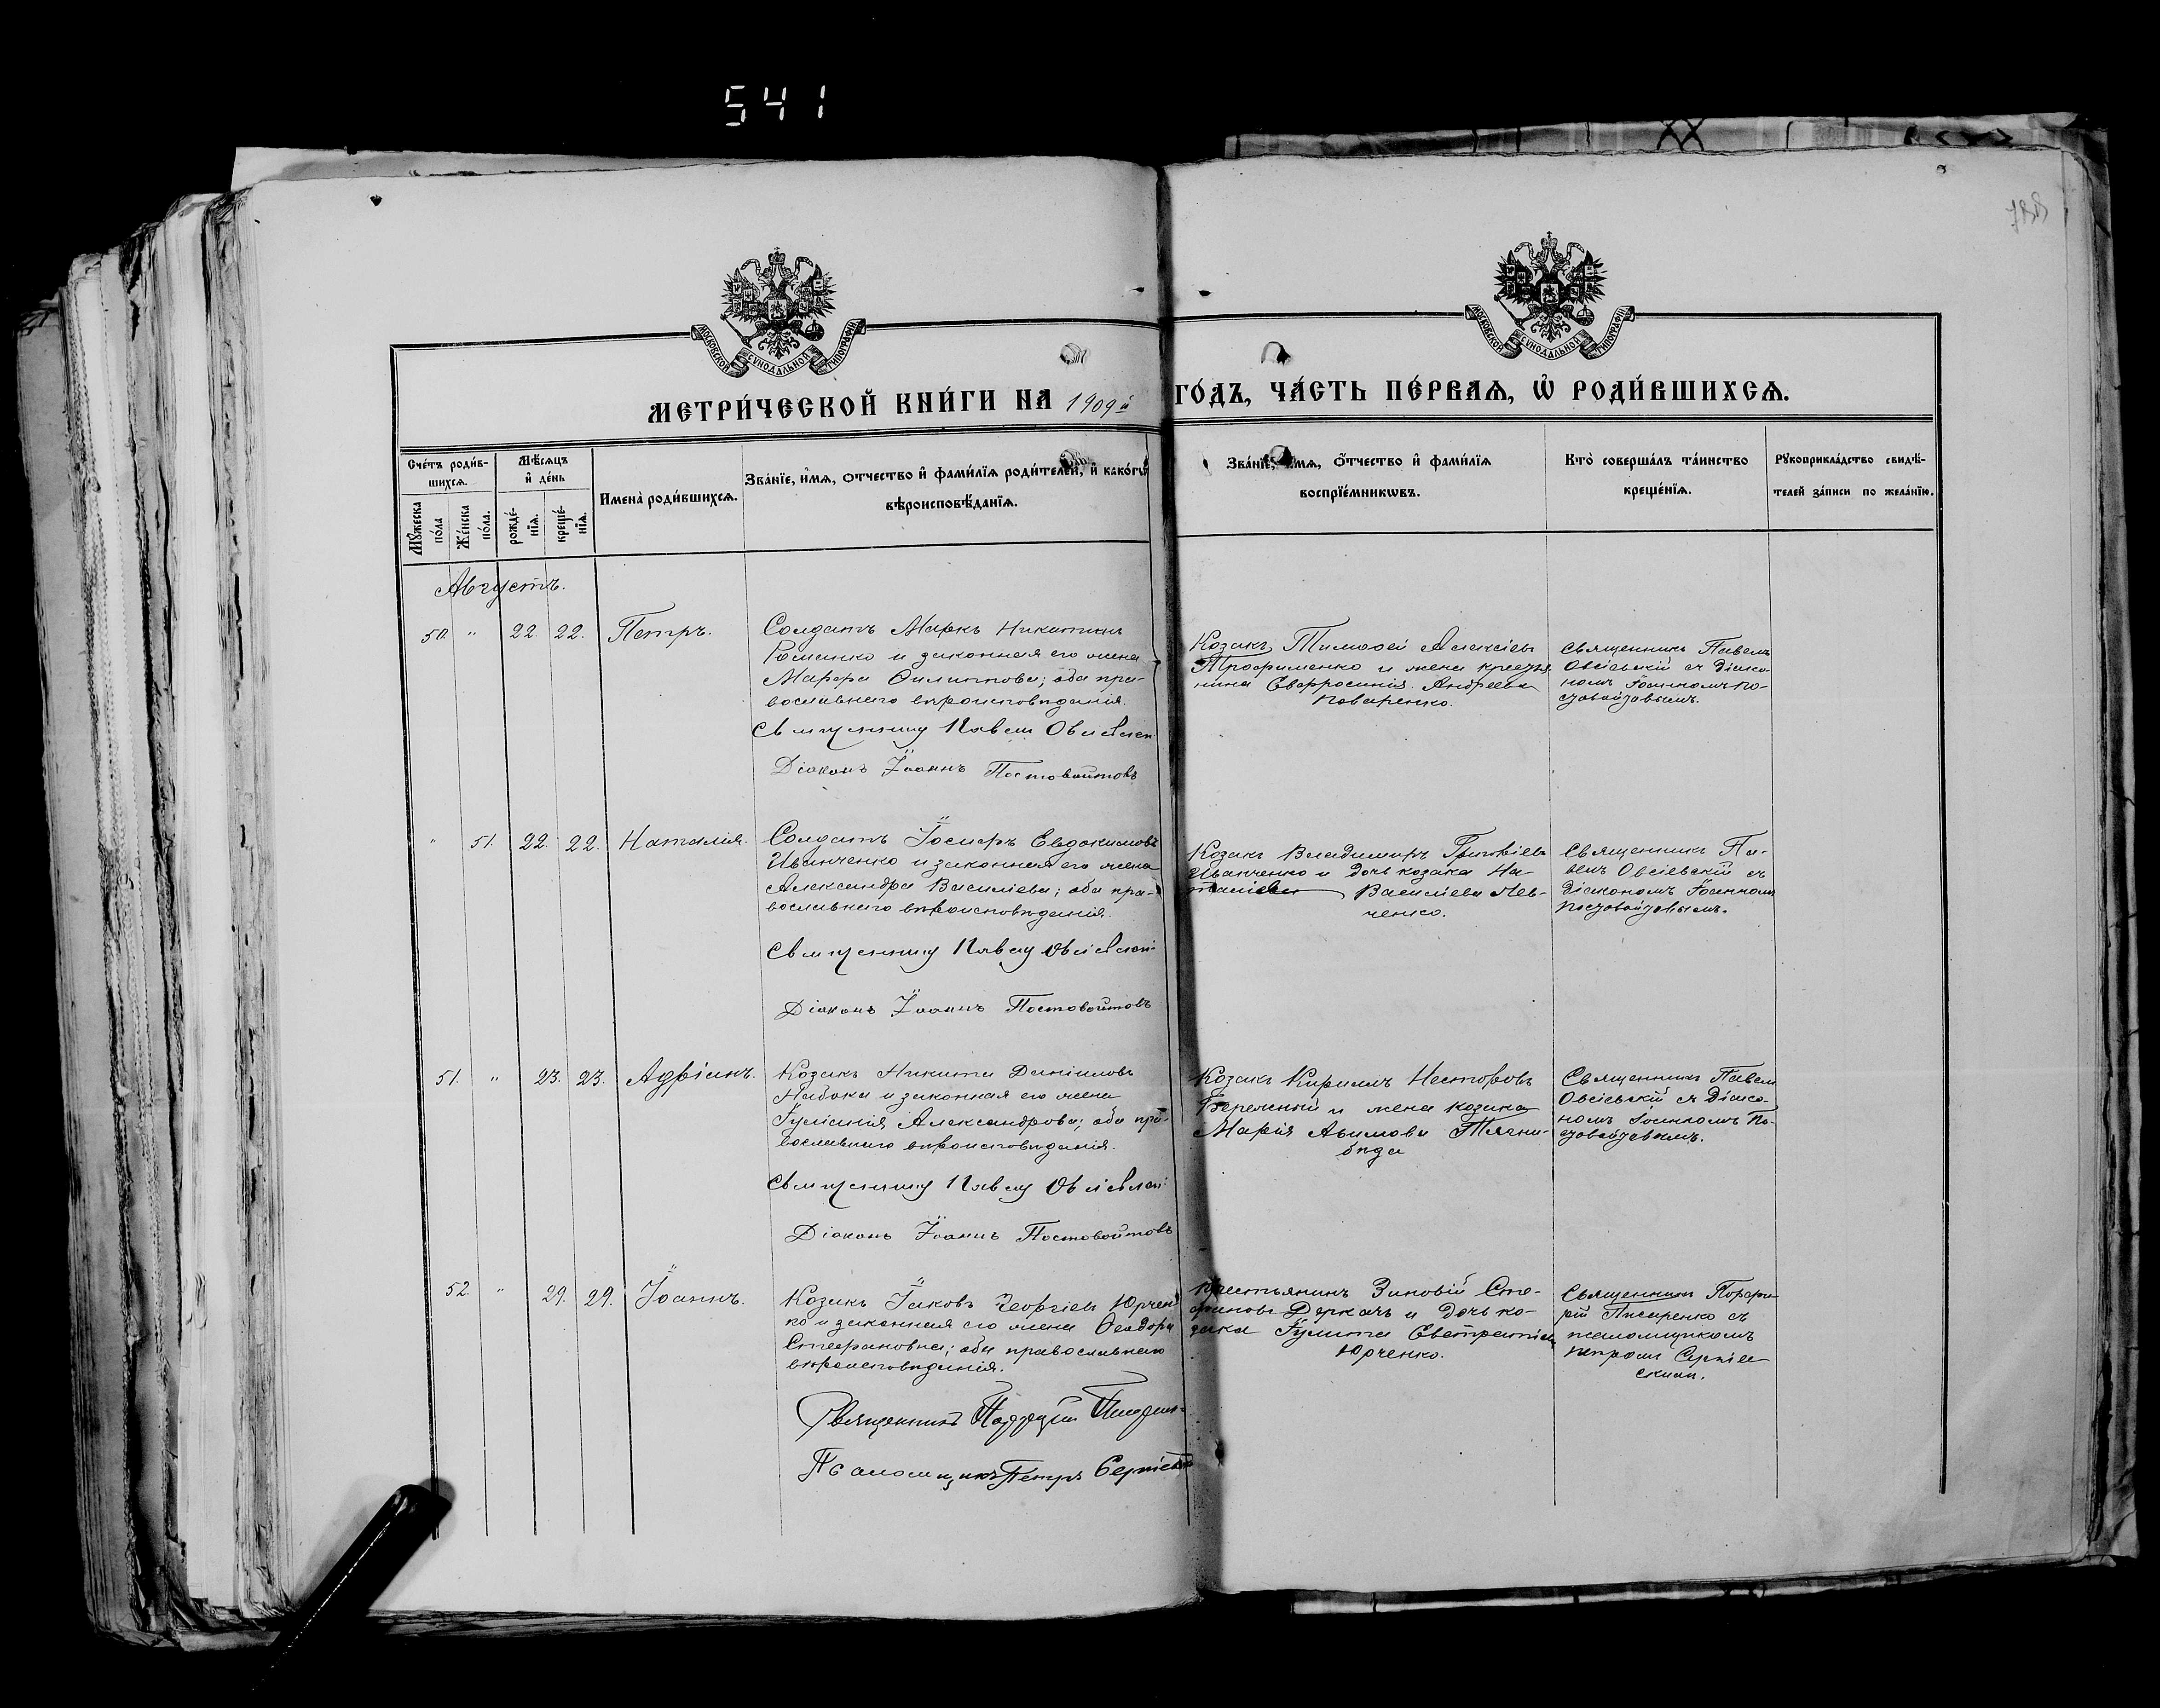 541
788
МОСКОВСКОЙ СУНОДАЛЬНОЙ ТИПОГРАФІИ
МОСКОВСКОЙ СУНОДАЛЬНОЙ ТИПОГРАФІИ
МЕТРИ́ЧЕСКОЙ КНИ́ГИ НА 1909й ГО́ДЪ, ЧА́СТЬ ПЕ́РВАѦ, Ѡ҆ РОДИ́ВШИХСѦ.
Сче́тъ роди́в-
шихсѧ.
Мꙋ́жеска по́ла
Же́нска по́ла.
Мѣ́сѧцъ
и҆ де́нь
рожде́-
нїѧ.
креще́-
нїѧ.
И҆мена̀ роди́вшихсѧ.
Зва́нїе, и҆́мѧ, о҆тчество и҆ фами́лїѧ роди́телей, и҆ како́гѡ
вѣроисповѣ́данїѧ.
Зва́нїе, и҆́мѧ, ѻ҆́тчество и҆ фами́лїѧ
воспрїе́мникѡвъ.
Кто̀ соверша́лъ та́инство
креще́нїѧ.
Рꙋкоприкла́дство свидѣ́-
телей за́писи по жела́нїю.
Августъ.
50. " 22. 22. Петръ.
Солдатъ Маркъ Никитинъ
Романко и законная его жена
Марфа Филиппова; оба пра-
вославнаго вѣроисповѣданія.
Священникъ Павелъ Овсіевскій
Діаконъ Іоаннъ Постовойтовъ
Козакъ Тимофей Алексіевъ
Трофименко и жена крестья
нина Евфросинія Андреева
Поваренко.
Священникъ Павелъ
Овсіевскій съ Діако
номъ Іоанномъ По-
стовойтовымъ.
" 51. 22. 22. Наталія.
Солдатъ Іосифъ Евдокимовъ
Иванченко и законная его жена
Александра Василіева; оба пра-
вославнаго вѣроисповѣданія.
Священникъ Павелъ Овсіевскій
Діаконъ Іоаннъ Постовойтовъ
Козакъ Владимиръ Григоріевъ
Иванченко и дочь козака На-
Василіева Лев-
ченко.
Священникъ Па-
велъ Овсіевскій съ
Діакономъ Іоанномъ
Постовойтовымъ.
51. " 23. 23. Адріанъ.
Козакъ Никита Даніиловъ
Набока и законная его жена
Іуліанія Александрова; оба пра-
вославнаго вѣроисповѣданія.
Священникъ Павелъ Овсіевскій
Діаконъ Іоаннъ Постовойтовъ
Козакъ Кириллъ Несторовъ
Бережный и жена козака
Марія Акимова Тягни-
бѣда
Священникъ Павелъ
Овсіевскій съ Діако-
номъ Іоанномъ По-
стовойтовымъ.
52. " 29. 29. Іоаннъ.
Козакъ Іаковъ Георгіевъ Юрчен
ко и законная его жена Феодора
Стефановна; оба православнаго
вѣроисповѣданія.
Священникъ Порфирій Писарен-
Псаломщикъ Петръ Сергіевскій
Крестьянинъ Зиновій Сте-
фановъ Деркачъ и дочь ко-
зака Іулита Евстратіева
Юрченко.
Священникъ Порфи
рій Писаренко съ
псаломщикомъ
Петромъ Сергіев
скимъ.